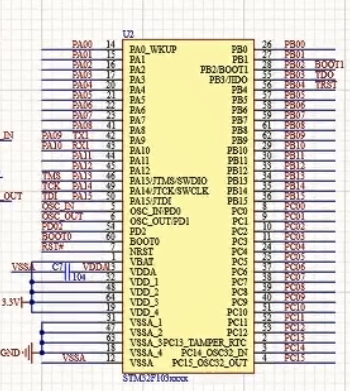 U2
PA00 14 PA0_WKUP PB0 26 PB00
PA01 15 PA1 PB1 27 PB01
PA02 16 PA2 PB2/BOOT1 28 PB02 BOOT1
PA03 17 PA3 PB3/JTDO 55 PB03 TDO
PA04 20 PA4 PB4 56 PB04 TRST
PA05 21 PA5 PB5 57 PB05
PA06 22 PA6 PB6 58 PB06
PA07 23 PA7 PB7 59 PB07
PA08 41 PA8 PB8 61 PB08
_IN PA09 TX1 42 PA9 PB9 62 PB09
PA10 RX1 43 PA10 PB10 29 PB10
PA11 44 PA11 PB11 30 PB11
PA12 45 PA12 PB12 33 PB12
TMS PA13 46 PA13/JTMS/SWDIO PB13 34 PB13
TCK PA14 49 PA14/JTCK/SWCLK PB14 35 PB14
_OUT TDI PA15 50 PA15/JTDI PB15 36 PB15
OSC_IN 5 OSC_IN/PD0 PC0 8 PC00
OSC_OUT 6 OSC_OUT/PD1 PC1 9 PC01
PD02 54 PD2 PC2 10 PC02
BOOT0 60 BOOT0 PC3 11 PC03
RST# 7 NRST PC4 24 PC04
1 VBAT PC5 25 PC05
VSSA C7 VDDA 13 VDDA PC6 37 PC06
104 32 VDD_1 PC7 38 PC07
48 VDD_2 PC8 39 PC08
3.3V 64 VDD_3 PC9 40 PC09
19 VDD_4 PC10 51 PC10
31 VSSA_1 PC11 52 PC11
47 VSSA_2 PC12 53 PC12
63 VSSA_3 PC13_TAMPER_RTC 2 PC13
GND 18 VSSA_4 PC14_OSC32_IN 3 PC14
VSSA 12 VSSA PC15_OSC32_OUT 4 PC15
STM32F103xxxx